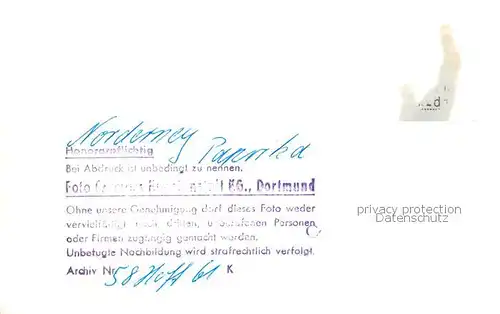 Norderney Paprika
Honorarpflichtig
Bei Abdruck ist unbedingt zu nennen.
Foto KG., Dortmund
Ohne unsere Genehmigung darf dieses Foto weder
vervielfältigt noch dritten, unberufenen Personen
oder Firmen zugängig gemacht werden.
Unbefugte Nachbildung wird strafrechtlich verfolgt.
Archiv Nr. 58 Hoff 61 K
privacy protection
Datenschutz